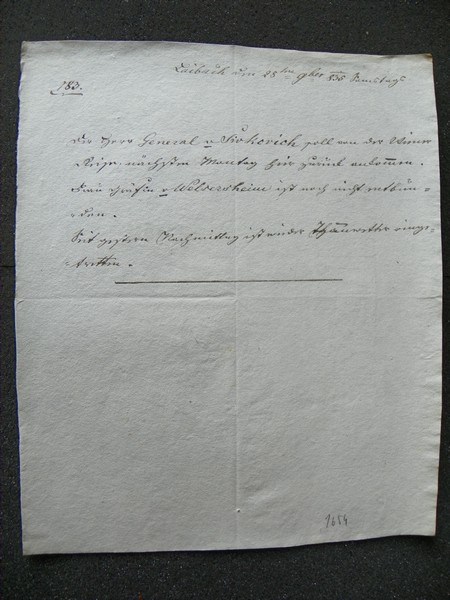 Laibach am 28ten 9ber 835 Samstags
183.
Der Herr General v. Sivkovich soll von der Wiener
Reise, nächsten Montag hier zurück ankommen.
Frau Gräfin v. Welsersheim ist noch nicht entbun-
den.
Seit gestern Nachmittag ist wieder Thauwetter einge-
tretten.
1654